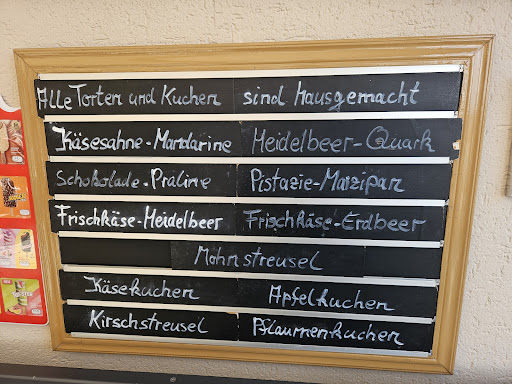 Alle Torten und Kuchen sind Hausgemacht
Käsesahne-Mandarine Heidelbeer-Quark
Schokolade-Praline Pistazie-Marzipan
Frischkäse-Heidelbeer Frischkäse-Erdbeer
Mohnstreusel
Käsekuchen Apfelkuchen
Kirschstreusel Pflaumenkuchen